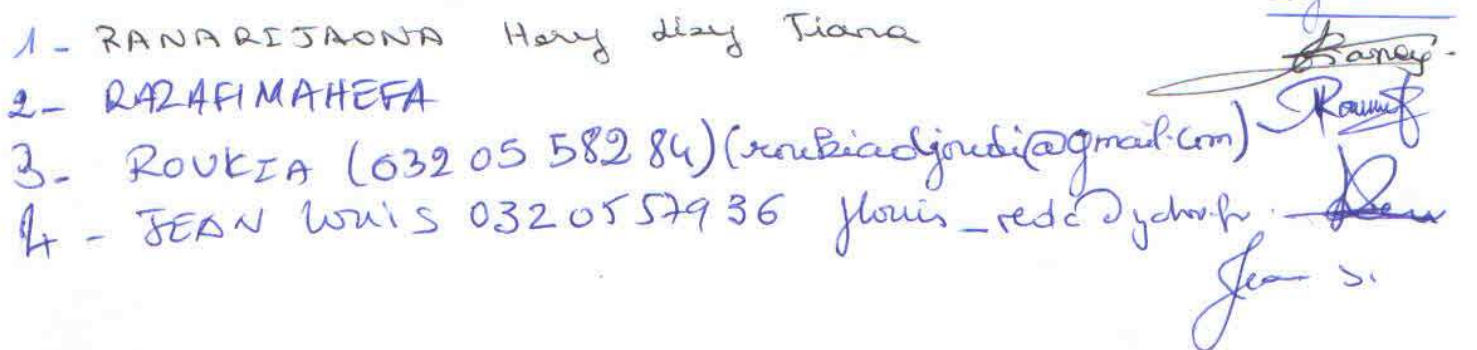 1 - RANARIJAONA Hery Lisy Tiana
2 - RAZAFIMAHEFA
3 - ROUKIA (032 05 582 84) (roukiadjoudi@gmail.com)
4 - JEAN LOUIS 0320557936 jlouis_redc@yahoo.fr
Jean